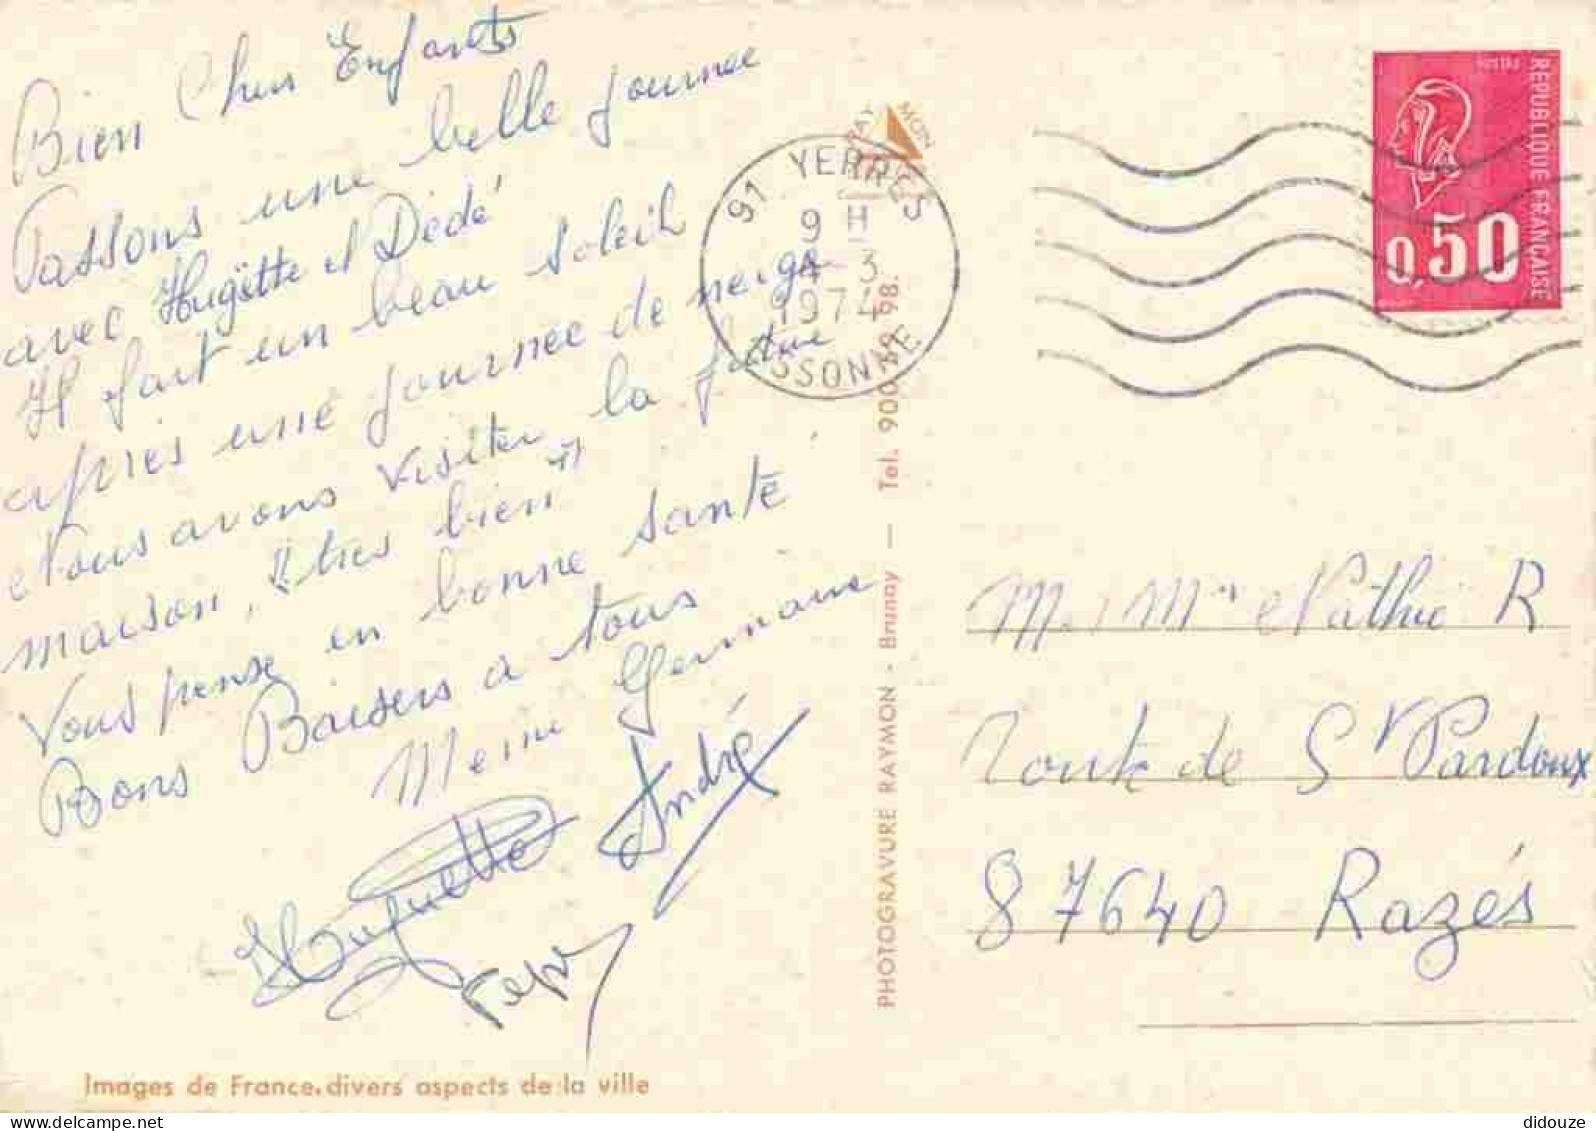 Bien Chers Enfants
Passons une belle journee
avec Hugëtte et Dédé
Il fait un beau soleil
après une journee de neige
Nous avons visiter la future
maison, "très bien"
Vous pense en bonne santé
Bons Baisers a tous
Germaine
André
Huguette
Pepe
91 YERRES
9 H
4-3
1974
ESSONNE
RAYMON
REPUBLIQUE FRANÇAISE
0,50
PHOTOGRAVURE RAYMON - Brunoy — Tel. 900 39 98.
M. Mme Pathie R
Route de St Pardoux
87640 Razés
Images de France.divers aspects de la ville
delcampe.net
didouze